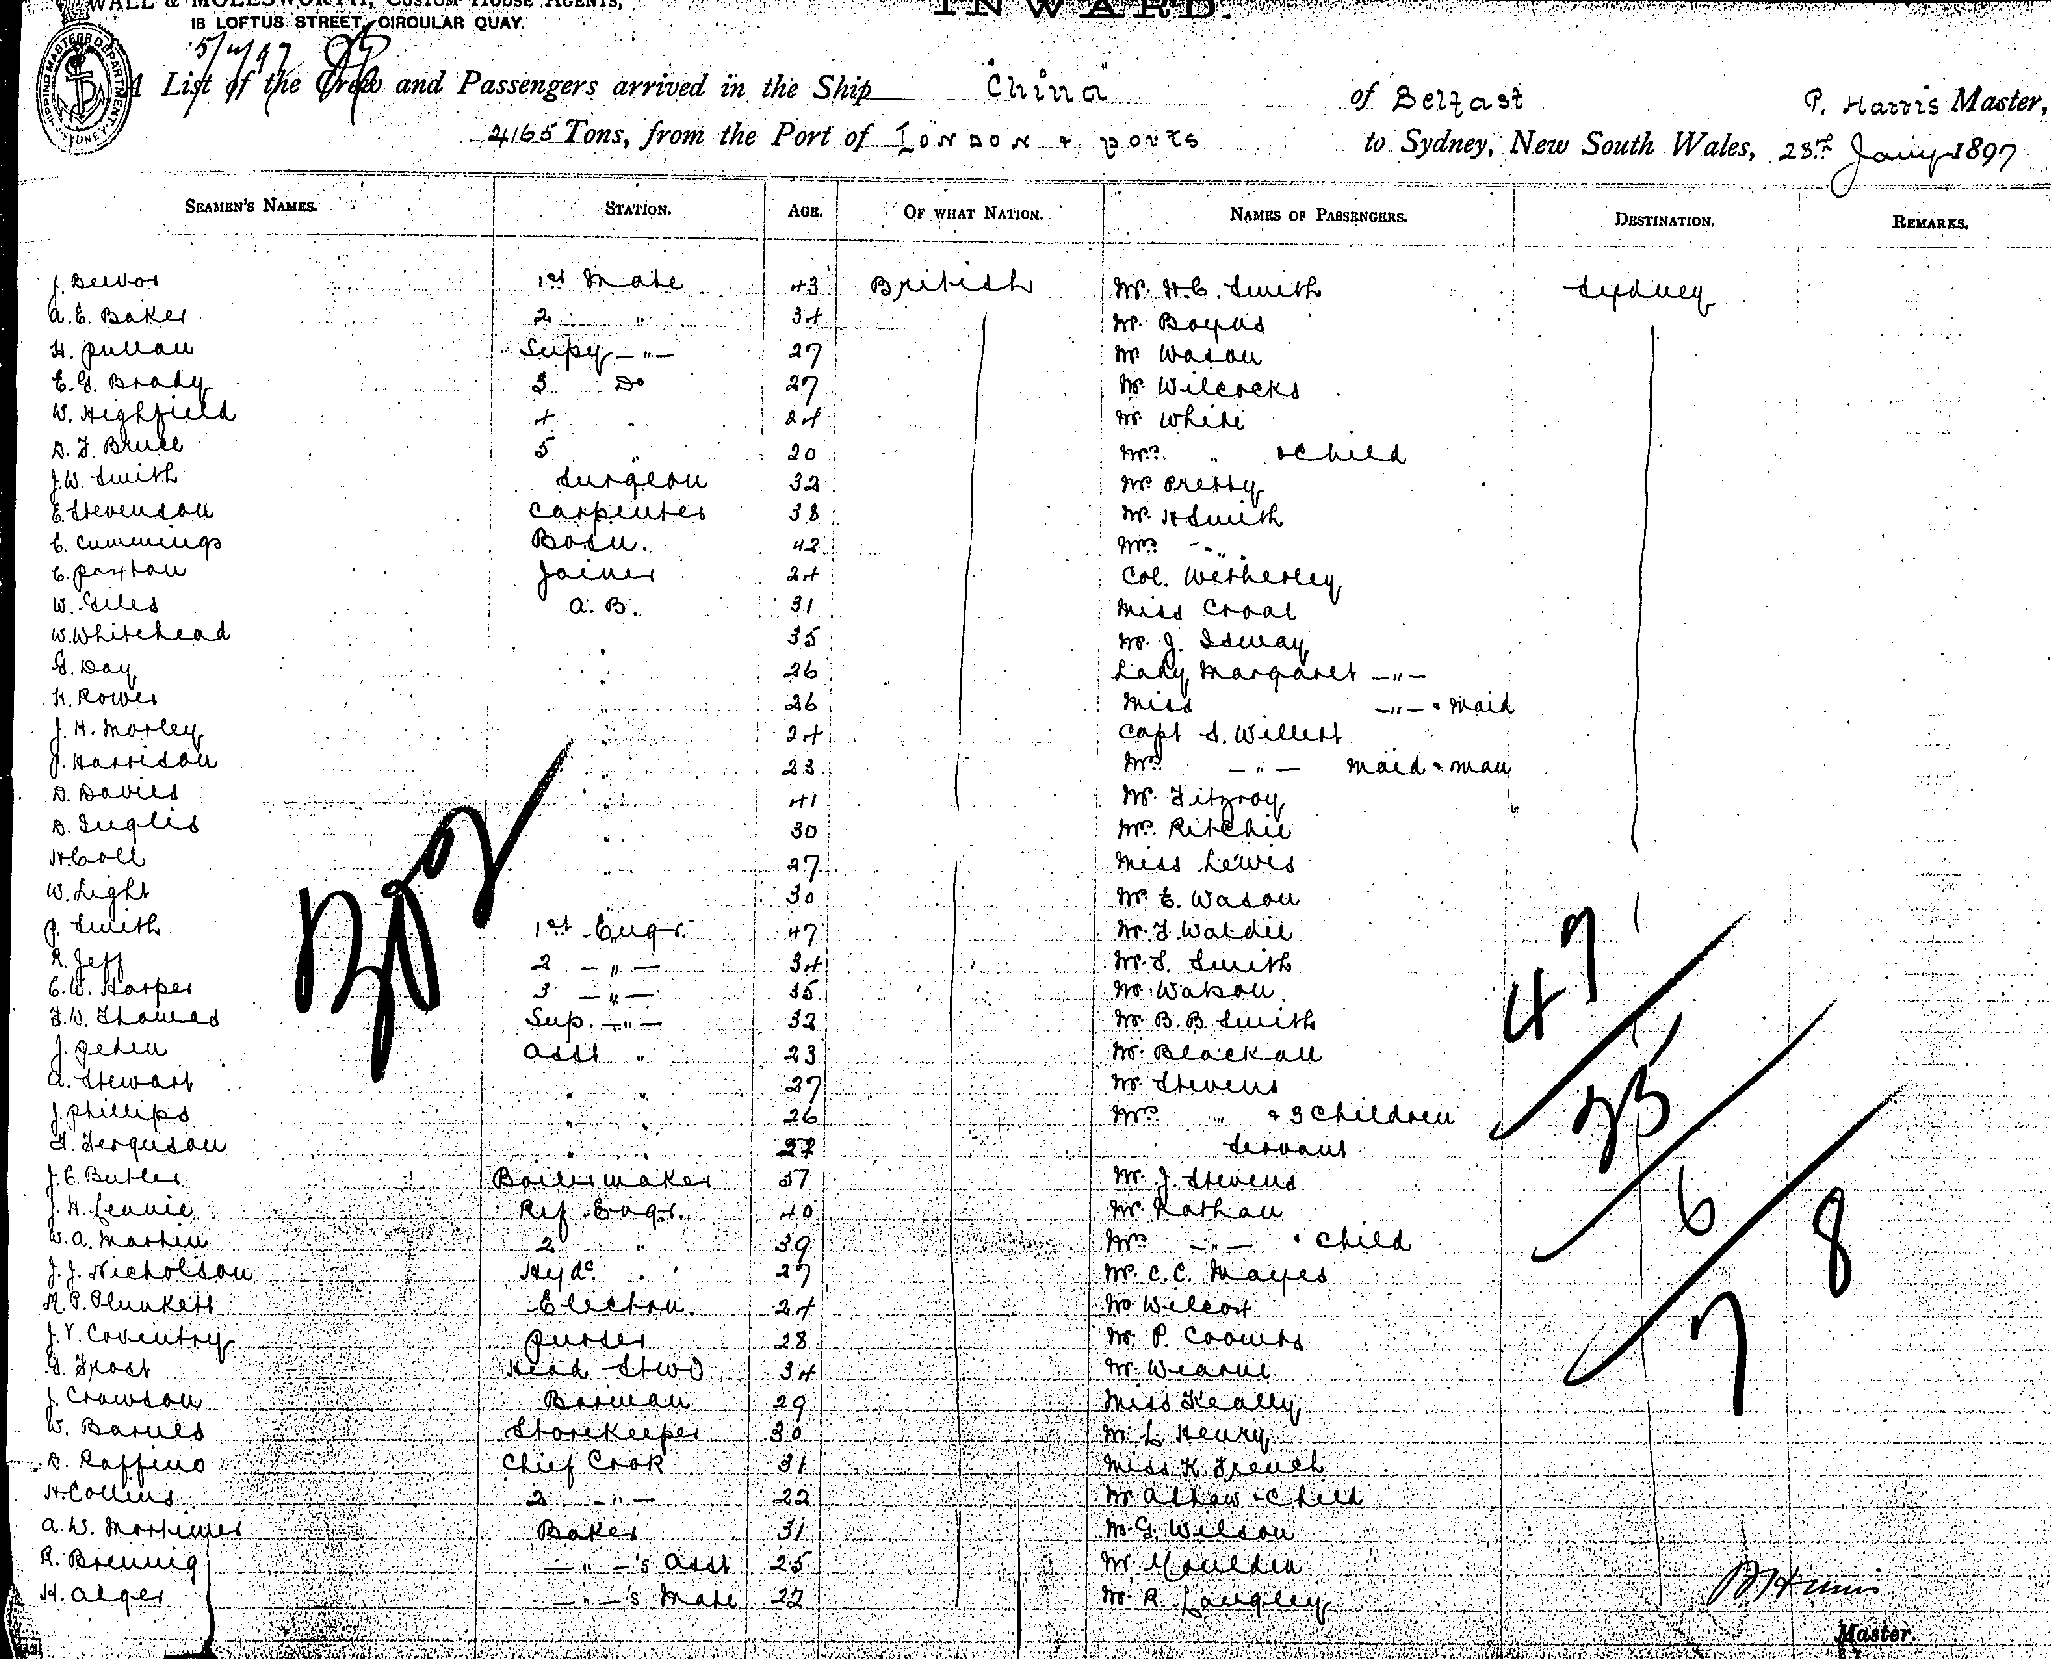 WALL & MOLESWORTH, CUSTOM HOUSE AGENTS,
18 LOFTUS STREET, CIRCULAR QUAY.
INWARD.
A List of the Crew and Passengers arrived in the Ship "China" of Belfast P. Harris Master,
4165 Tons, from the Port of London & ports to Sydney, New South Wales, 28th Jany 1897
SEAMEN'S NAMES. STATION. AGE. OF WHAT NATION. NAMES OF PASSENGERS. DESTINATION. REMARKS.
1st Mate 43 British Mr. H.C. Smith Sydney
A. E. Baker 2 " 34 Mr.
H. Pullan Supy —"— 27 Mr Wason
E. G. Brady 3 Do 27 Mr. Wilcocks
W. Highfield 4 24 Mr White
D. F. Bruce 5 " 20 Mrs. " & Child
J. W. Smith Surgeon 32 Mr Pretty
E Stevenson Carpenter 38 Mr. H Smith
C. Cummings Bosn. 42 Mrs "
C. Paxton Joiner 24 Col. Wetherley
W. Giles A. B. 31 Miss Croal
W. Whitehead " 35 Mr. J. Ismay
G. Day " 26 Lady Margaret —"—
H. Rower " 26 Miss —"— & Maid
J. H. Morley " 24 Capt S. Willert
J. Harrison " 23 Mrs —"— Maid & man
D. Davies " 41 Mr. Fitzroy
D. Inglis " 30 Mrs. Ritchie
H Coll " 27 Miss Lewis
W. Light 30 Mr. E. Wason
P. Smith 1st Engr. 47 Mr. F.
R. Jeff 2 —"— 34 Mr. S. Smith
C. W. Harper 3 —"— 35 Mr. Watson
F. W. Thomas Sup. —"— 32 Mr. B. B. Smith
J. Asst " 23 Mr. Blackall
A. Stewart " " 27 Mr. Stevens
J. Phillips " " 26 Mrs " & 3 Children
F. Ferguson " " 22 Servant
J. C. Butler Boilermaker 57 Mr. J. Stevens
J. H. Rennie Ref. Engr. 40 Mr. Nathan
W. A. Martin 2 " 39 Mrs —"— & Child
J. J. Nicholson Hydc. " 27 Mr. C. C. Mayes
R P. Plunkett Electrn. 24 Mr Wilcox
J. V. Coventry Purser 28 Mr. P. Coombs
G. Frost Head Stwd 34 Mr. Wearne
J. Crawson Barman 29 Miss Keally
W. Barnes Storekeeper 30 Mr L Henry
D. Raffino Chief Cook 31 Miss K. French
H. Collins 2 —"— 22 Mr & Child
A. W. Mortimer Baker 31 Mr. G. Wilson
R. Brennig —"—'s Asst 25 Mr Moulden
H. Alger —"—'s Mate 22 Mr. R. Langley
47
23
6
7
8
P Harris
Master.